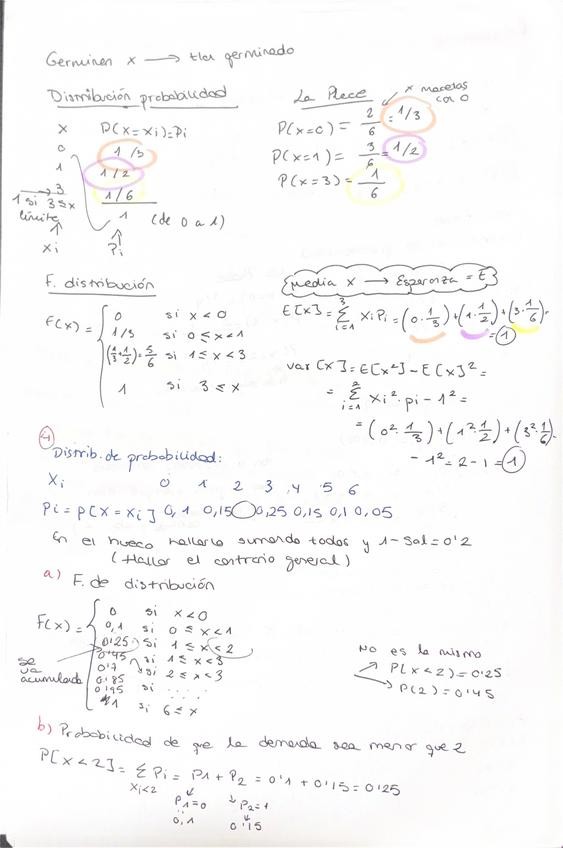 Germinen x → tla germinado
Distribución probabilidad
x P(x=xi)=Pi
0 1/3
1 1/2
3 1/6
1 si 3≤x
límite
1 (de 0 a 1)
xi Pi
La Place
x macetas
con 0
P(x=0) = 2/6 = 1/3
P(x=1) = 3/6 = 1/2
P(x=3) = 1/6
F. distribución
F(x) = { 0 si x<0
1/3 si 0≤x<1
(1/3+1/2)=5/6 si 1≤x<3
1 si 3≤x
Media x → Esperanza = E
E[x] = 3 Σ i=1 xi Pi = (0·1/3)+(1·1/2)+(3·1/6)=
=1
var[x]=E[x²]-E[x]²=
= 2 Σ i=1 xi²·pi - 1² =
= (0²·1/3)+(1²·1/2)+(3²·1/6)-
-1²=2-1=1
4
Distrib. de probabilidad:
xi 0 1 2 3 4 5 6
Pi = P[X=xi] 0,1 0,15 0,25 0,15 0,1 0,05
En el hueco hallarlo sumando todos y 1-sal=0'2
(Hallar el contrario general)
a) F. de distribución
F(x) = { 0 si x<0
0,1 si 0≤x<1
0'25 si 1≤x<2
0'45 si 1≤x<3
0'7 si 2≤x<3
0'85
0'95 si .....
1 si 6≤x
se
va
acumulada
No es lo mismo
P(x<2)=0'25
P(2)=0'45
b) Probabilidad de que la demanda sea menor que 2
P[x<2] = Σ xi<2 Pi = P1+P2 = 0'1+0'15=0'25
P1=0 P2=1
0,1 0'15